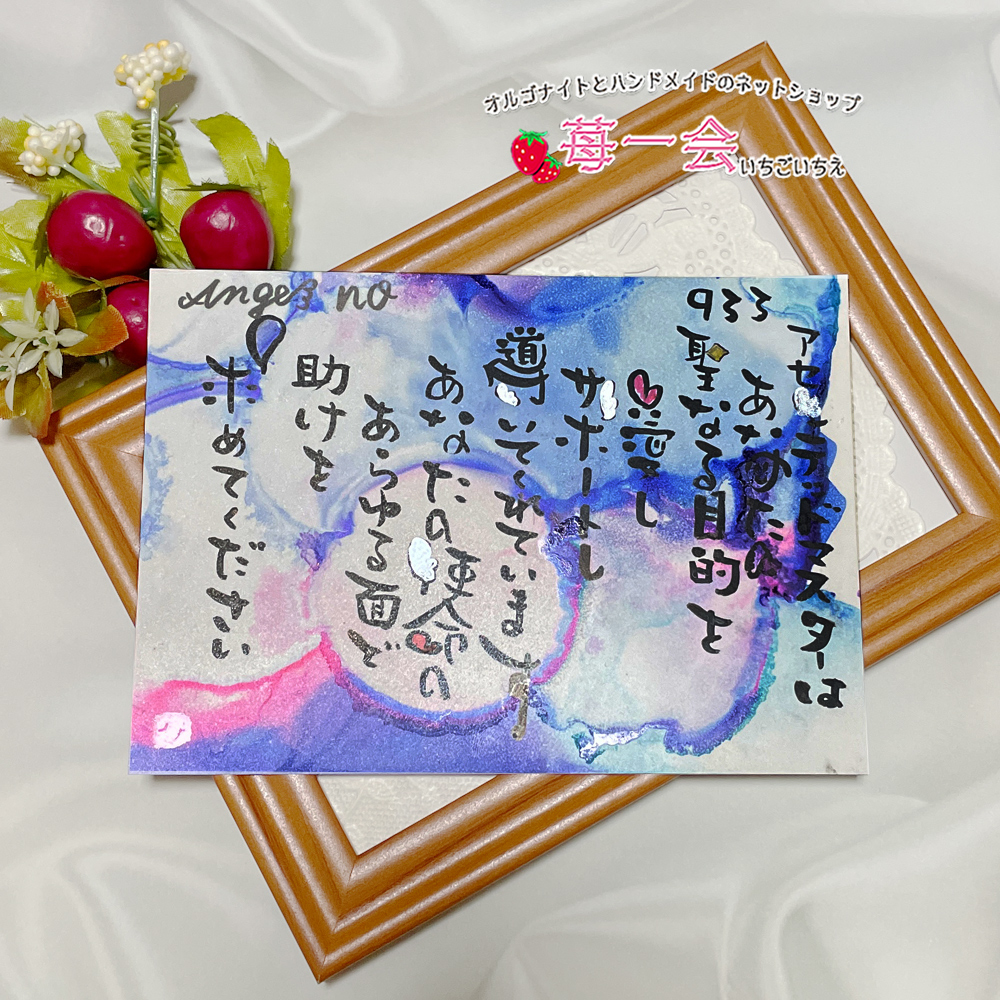 オルゴナイトとハンドメイドのネットショップ
苺一会
いちごいちえ
Angel no
933
アセンデッドマスターは
あなたの
聖なる目的を
愛し
サポートし
導いてくれています
あなたの使命の
あらゆる面で
助けを
求めてください